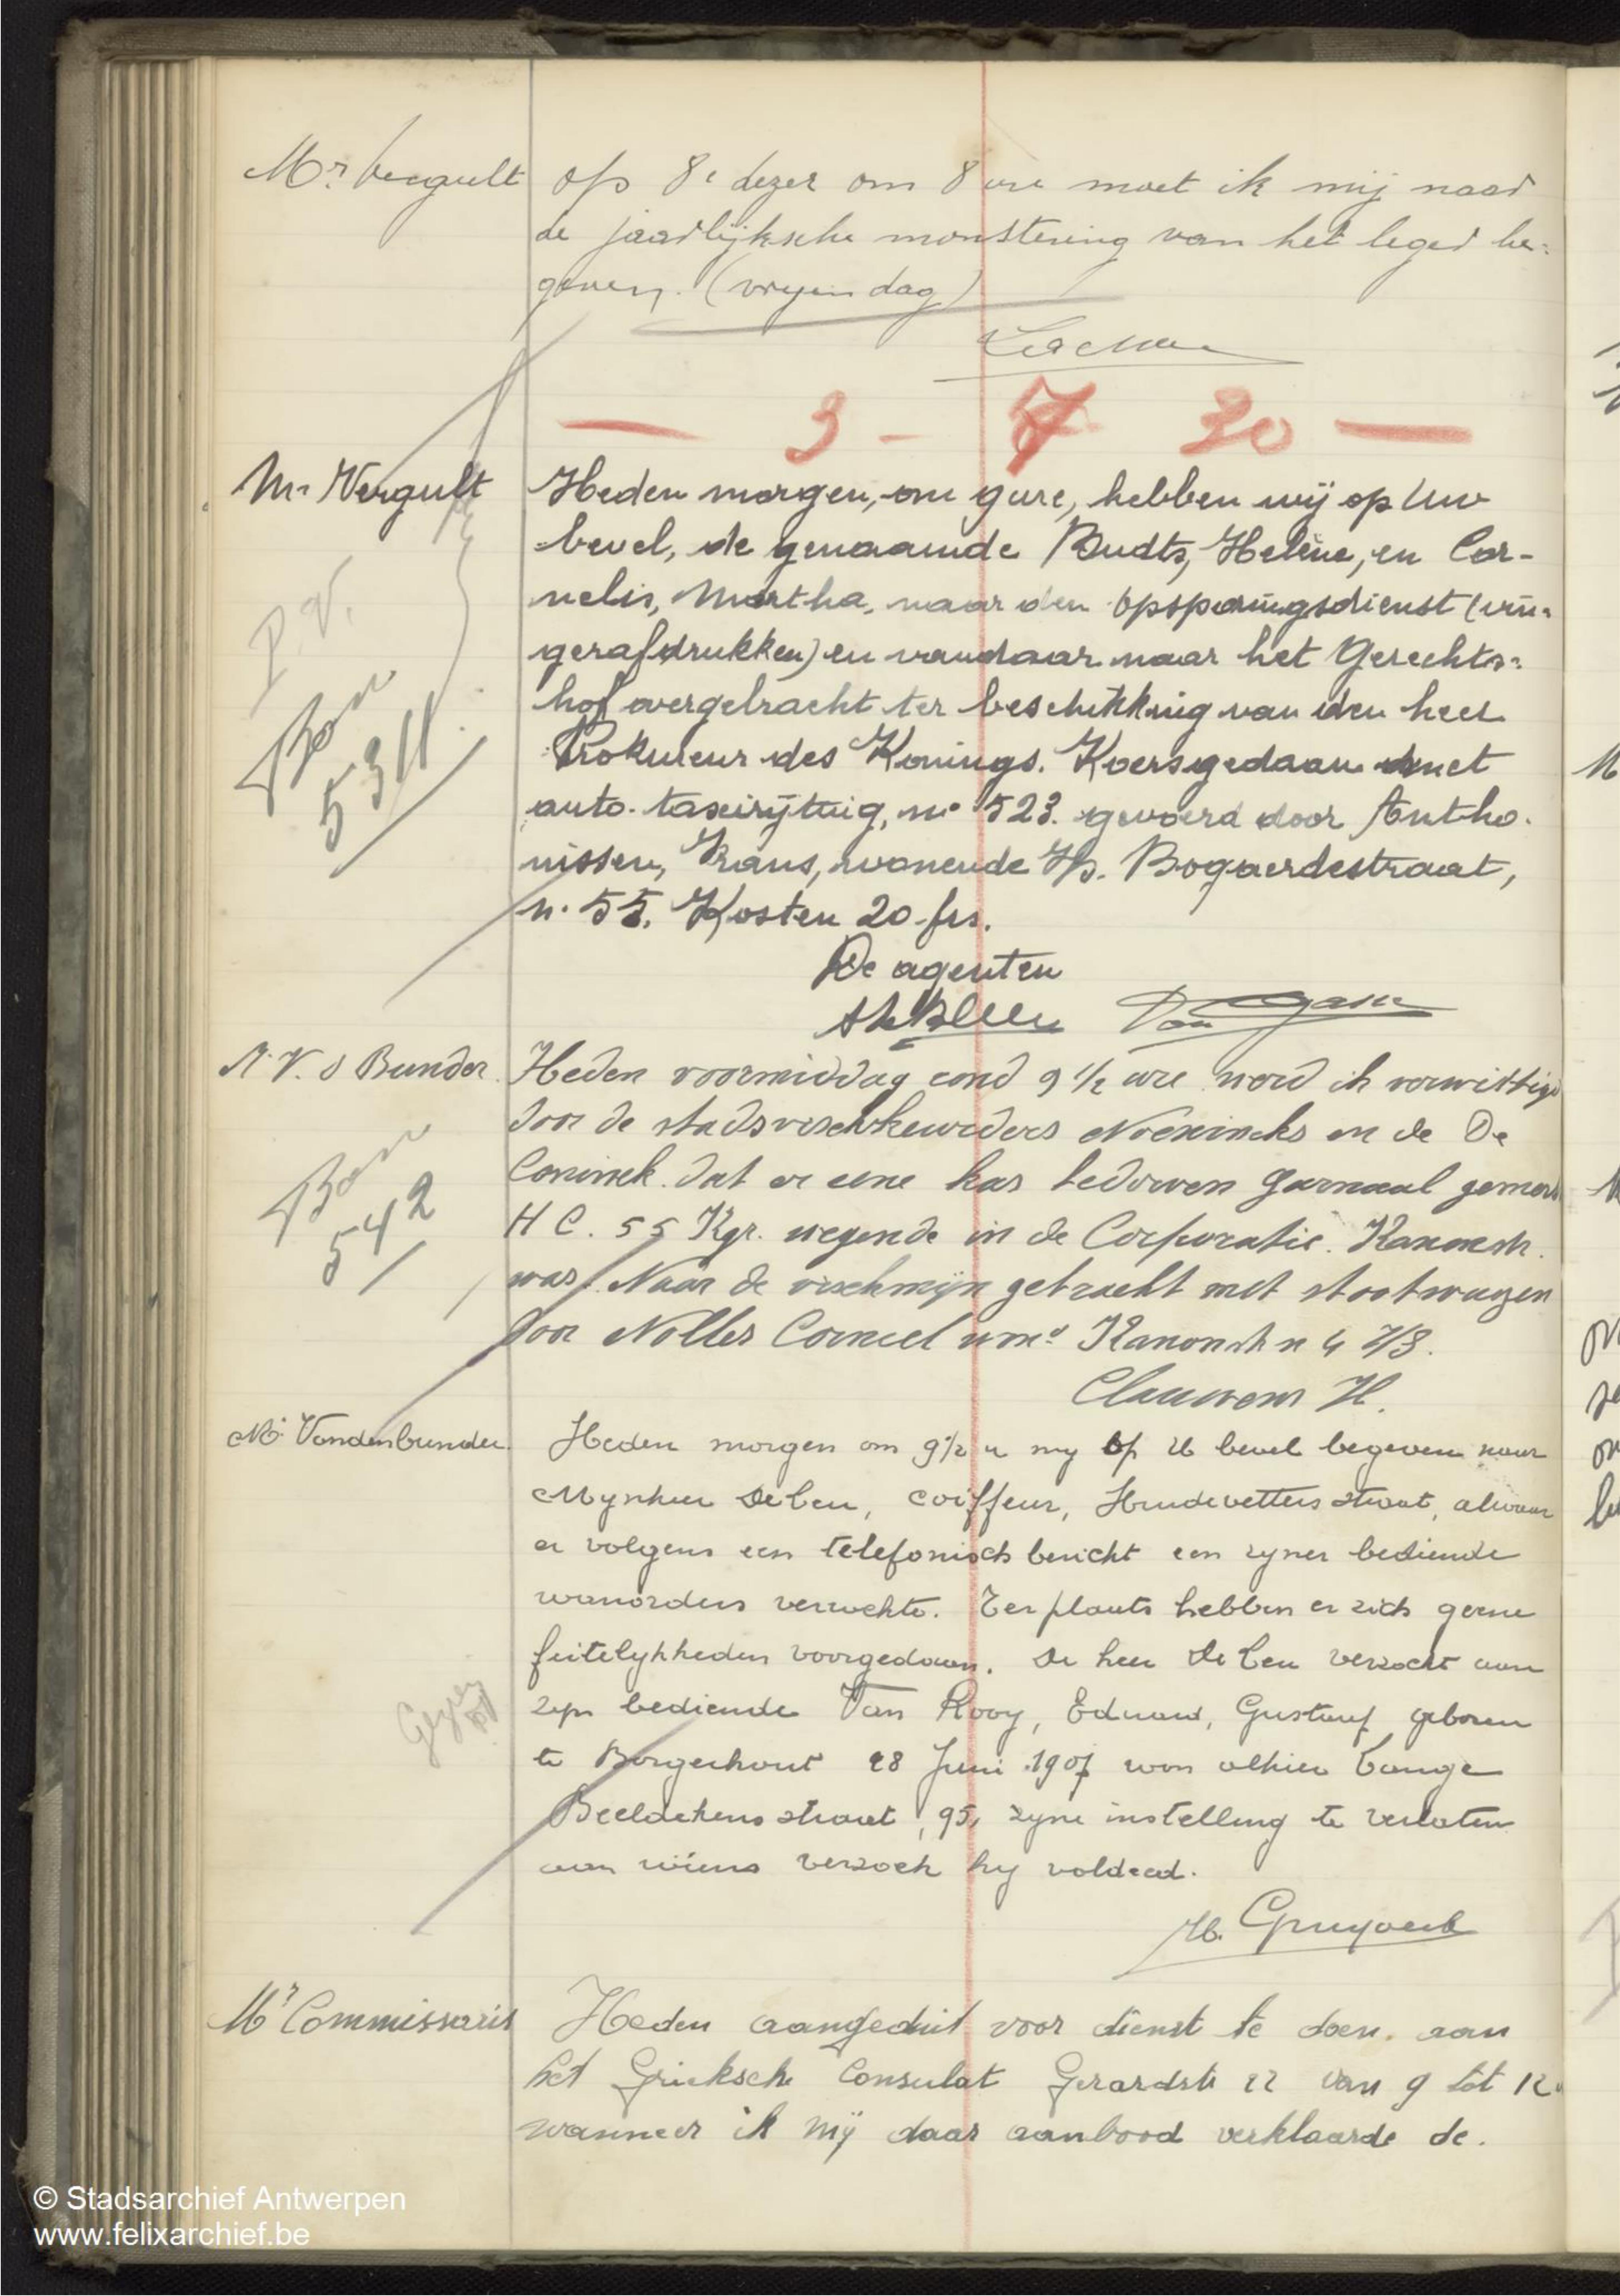 Mr Vergult
op 8e dezer om 8 ure moet ik mij naar
de jaarlijksche monstering van het leger be:
geven. (vrijen dag)
— 3 - 7 30 —
Mr Vergult
Heden morgen, om 9 ure, hebben wij op Uw
bevel, de genaamde Budts, Helène, en Cor-
nelis, Martha, naar den opsporingsdienst (vin-
gerafdrukken) en vandaar naar het Gerechts:
hof overgebracht ter beschikking van den heer
Prokureur des Konings. Koers gedaan met
auto-taxirijtuig, no 523. gevoerd door Antho-
nissen, Frans, wonende Hp. Bogaerdestraat,
n. 55. Kosten 20 frs.
P.V.
Bon
5311
De agenten
Van
M. V. d Bunder
Heden voormiddag rond 9 1/2 ure werd ik verwittigd
door de stadsvischkeurders Noeninckx en de De
Coninck dat er eene kas bedorven garnaal gemerk
H C. 55 Kgr. wegende in de Corporatie. Kanonstr.
was. Naar de vischmijn gebracht met stootwagen
door Nolles Corneel won. Kanonstr n 4
Bon
542
Clauwens H.
Mr Vandenbunder
Heden morgen om 9 1/2 u my op U bevel begeven naar
Mynheer De Ceu, coiffeur, Huidevettersstraat, alwaar
er volgens een telefonisch bericht een zyner bediende
wanorders verwekte. Ter plaats hebben er zich geene
feitelykheden voorgedaan. De heer De Ceu verzocht aan
zyn bediende Van Rooy, Eduard, Gustaaf geboren
te Borgerhout 28 Juni 1907 won alhier Lange
Beeldekensstraat, 95, zyne instelling te verlaten
aan wiens verzoek hy voldeed.
Gezien
Mr Commissaris
Heden aangeduid voor dienst te doen aan
het Grieksch Consulat Gerardstr 22 van 9 tot 12u
wanneer ik mij daar aanbood verklaarde de
© Stadsarchief Antwerpen
www.felixarchief.be